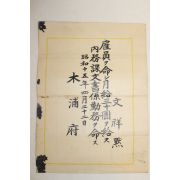 文祥熙
雇員ヲ命シ月給三十圓ヲ給ス
内務課文書係勤務ヲ命ス
昭和十五年四月三十日
木浦府